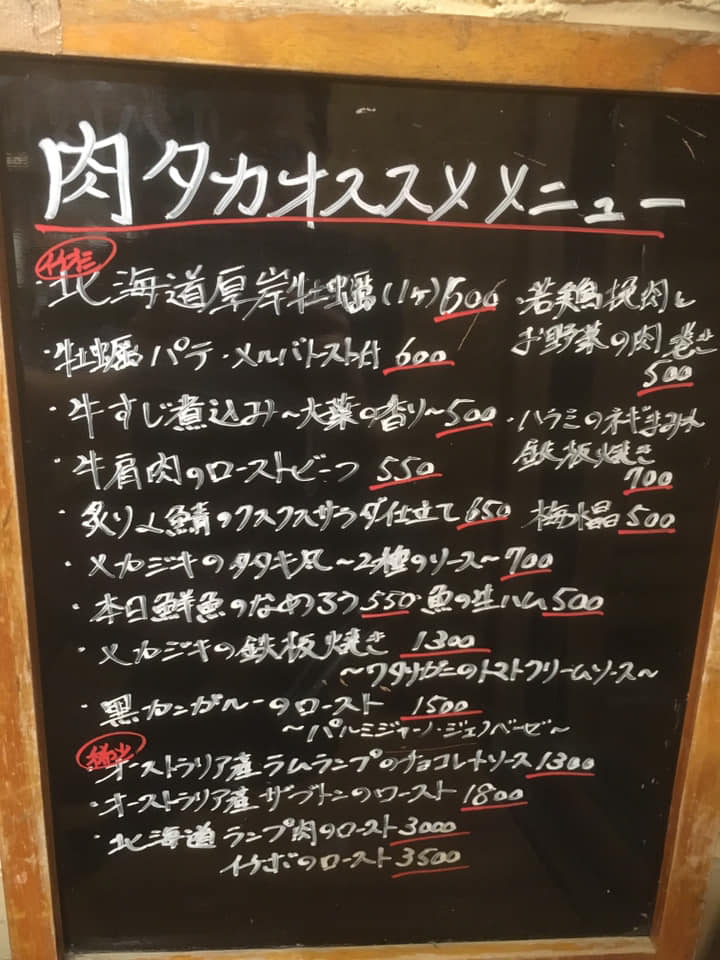 肉タカオススメメニュー
・北海道厚岸牡蠣(1ヶ)600
・牡蠣パテ・メルバトースト付 600
・牛すじ煮込み～大葉の香り～500
・牛肩肉のローストビーフ 550
・炙り〆鯖のクスクスサラダ仕立て 650
・メカジキのタタキ風～2種のソース～700
・本日鮮魚のなめろう 550
・メカジキの鉄板焼き 1300
～ワタリガニのトマトクリームソース～
・黒カンガルーのロースト 1500
～パルミジャーノ・ジェノベーゼ～
・オーストラリア産ラムランプのチョコレートソース 1300
・オーストラリア産ザブトンのロースト 1800
・北海道ランプ肉のロースト 3000
イチボのロースト 3500
・若鶏挽肉と
お野菜の肉巻き
500
・ハラミのネギまみれ
鉄板焼き
700
梅水晶 500
魚の生ハム 500